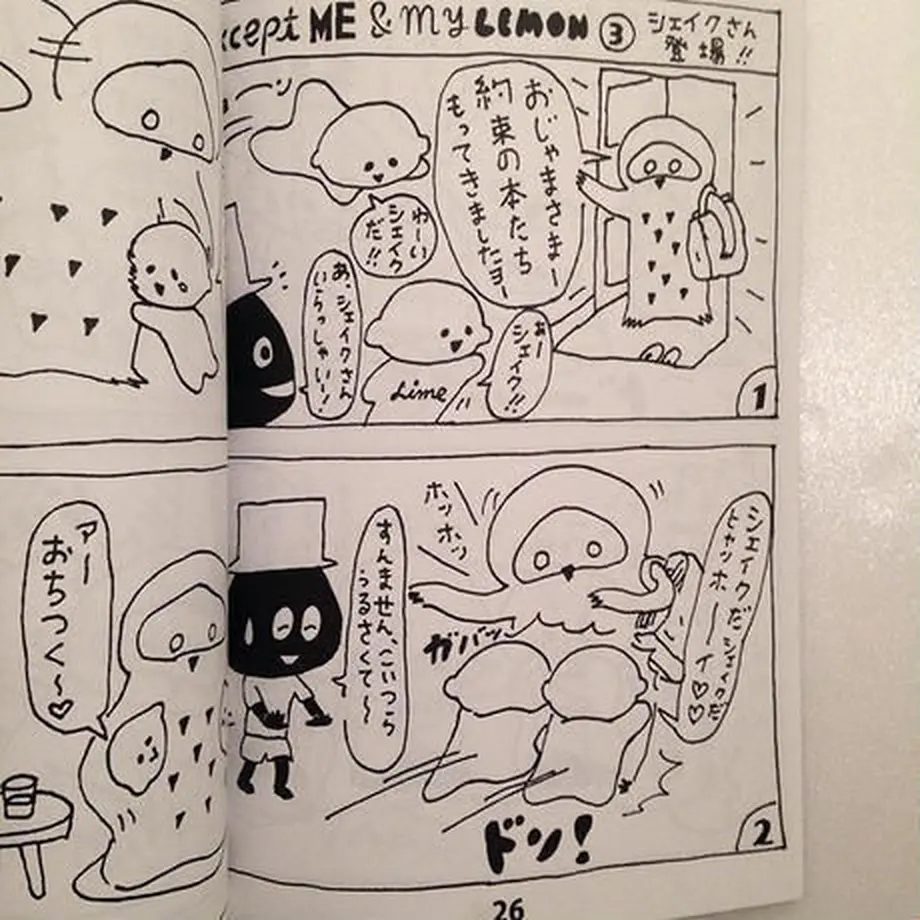 cept ME & My LEMON ③ シェイクさん
登場!!
おじゃまさまー
約束の本たち
もってきましたヨー
わーい
シェイク
だ!!
あーシェイク!!
あ、シェイクさん
いらっしゃいー!
Lime
1
シェイクだ シェイクだ
ヒャッホーーイ♡♡
ホッホッ
ガバッ
すんません、こいつら
うるさくて〜
ドン!
2
アー
おちつく〜♡
26